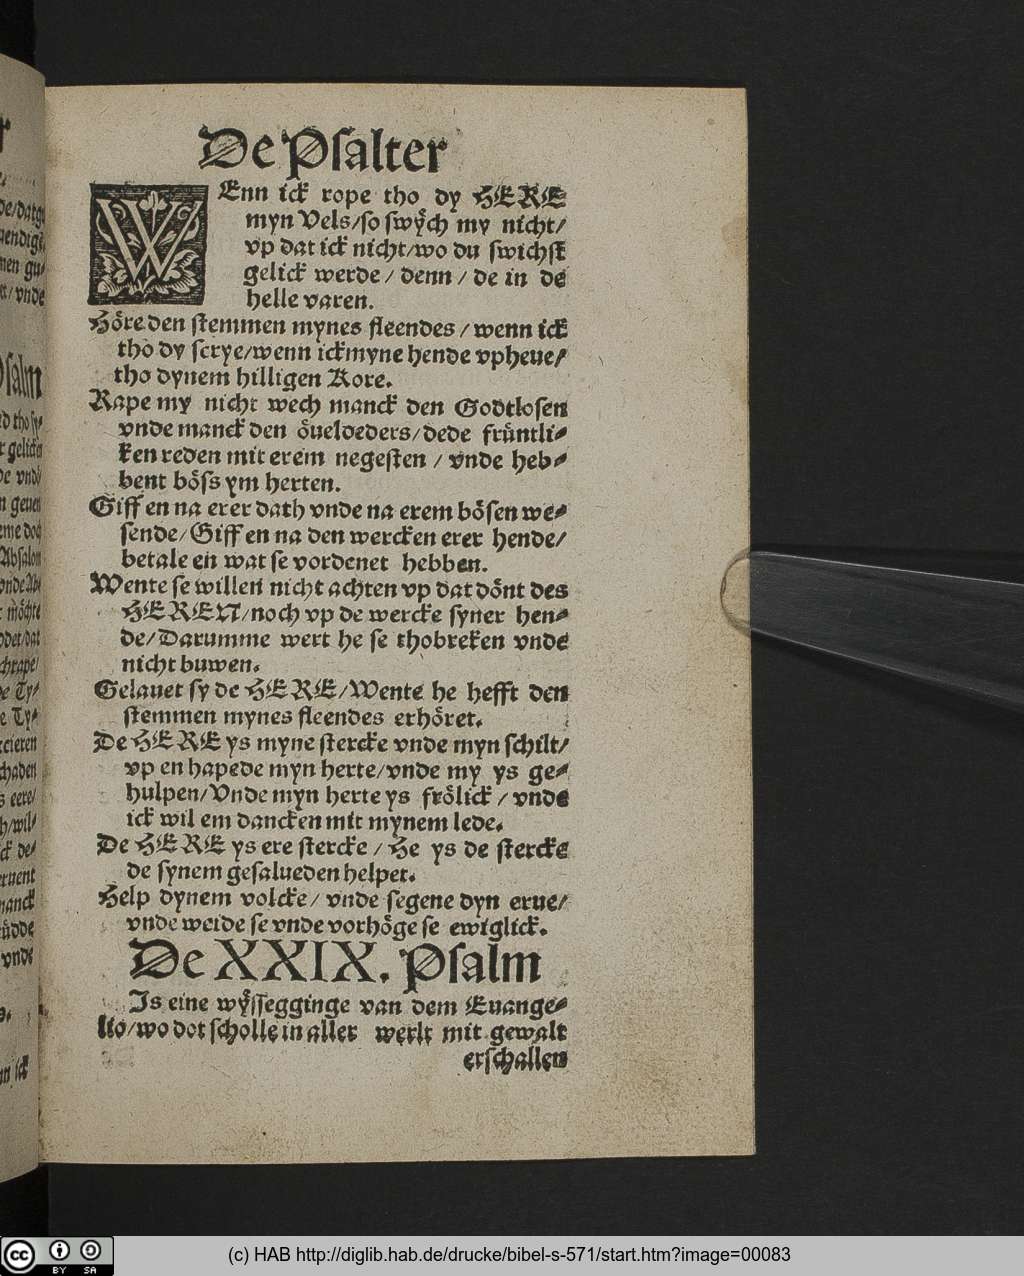 De Psalter
WEnn ick rope tho dy HERE
myn Vels/so swych my nicht/
vp dat ick nicht/wo du swichst
gelick werde/denn/de in de
helle varen.
Höre den stemmen mynes fleendes/wenn ick
tho dy scrye/wenn ick myne hende vpheue/
tho dynem hilligen Kore.
Rape my nicht wech manck den Godtlosen
vnde manck den öueldeders/dede früntli⸗
ken reden mit erem negesten/vnde heb⸗
bent böss ym herten.
Giff en na erer dath vnde na erem bösen we⸗
sende/Giff en na den wercken erer hende/
betale en wat se vordenet hebben.
Wente se willen nicht achten vp dat dönt des
HEREN/noch vp de wercke syner hen⸗
de/Darumme wert he se thobreken vnde
nicht buwen.
Gelauet sy de HERE/Wente he hefft den
stemmen mynes fleendes erhöret.
De HERE ys myne stercke vnde myn schilt/
vp en hapede myn herte/vnde my ys ge⸗
hulpen/Vnde myn herte ys frölick/vnde
ick wil em dancken mit mynem lede.
De HERE ys ere stercke/He ys de stercke
de synem gesalueden helpet.
Help dynem volcke/vnde segene dyn erue/
vnde weide se vnde vorhöge se ewiglick.
De XXIX. Psalm
Is eine wÿssegginge van dem Euange⸗
lio/wo dot scholle in aller werlt mit gewalt
erschallen
(c) HAB http://diglib.hab.de/drucke/bibel-s-571/start.htm?image=00083
cc BY SA